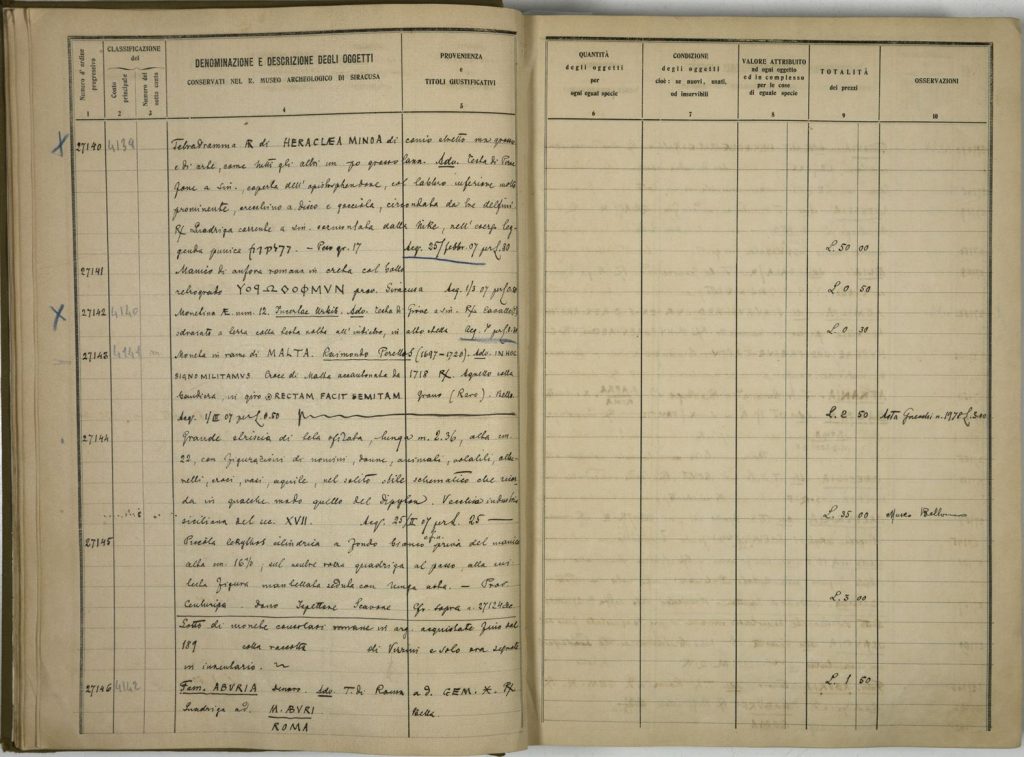 Numero d'ordine progressivo
CLASSIFICAZIONE
del
Conto principale
Numero del sotto conto
DENOMINAZIONE E DESCRIZIONE DEGLI OGGETTI
CONSERVATI NEL R. MUSEO ARCHEOLOGICO DI SIRACUSA
PROVENIENZA
e
TITOLI GIUSTIFICATIVI
1 2 3 4 5
27140 4139 Tetradramma AR di HERACLEA MINOA di conio stretto ma grosso
e di arte, come tutti gli altri un po grosso lana. Adv. testa di Perse
fone a sin., coperta dell' opistosphendone, col labbro inferiore molto
prominente, orecchino a disco e gocciola, circondata da tre delfini.
R/ Quadriga corrente a sin. sormontata dalla Nike, nell' esergo leg
genda punica — Peso gr. 17 Acq. 25/febbr. 07 per £. 30
27141 Manico di anfora romana in creta col bollo
retrogrado prov. Siracusa Acq. 1/3 07 per £ 0.50
27142 4140 Monetina AE mm. 12. Incertae Urbis. Adv. testa di Giove a sin. R/
sdraiato a terra colla testa volta all' indietro, in alto Acq. per £
27143 4141 Moneta in rame di MALTA. Raimondo Perellos (1697-1720). Adv. IN HOC
SIGNO MILITAMVS. Croce di Malta accantonata da 1718 R/ Agnello colla
bandiera, in giro DIRECTAM FACIT SEMITAM. Grano (Raro). Bello.
Acq. 1/III 07 per £ 0.50
27144 Grande striscia di tela sfilata, lunga m. 2.36, alta cm.
22, con figurazioni di uomini, donne, animali, volatili, albe
relli, croci, vasi, aquile, nel solito stile schematico che ricor
da in qualche modo quello del Dipylon. Vecchia industria
siciliana del sec. XVII. Acq. 25/II 07 per £. 25 —
27145 Piccola lekythos cilindrica a fondo bianco ora priva del manico
alta cm. 16½, sul ventre rozza quadriga al passo, alla cui
testa figura mantellata seduta con lunga asta. — Prov.
Centuripa. dono Ispettore Scavone Cfr. sopra n. 27124
Lotto di monete consolari romane in arg. acquistate fino dal
189 colla raccolta di Vizzini e solo ora segnate
in inventario.
27146 4142 Fam. ABVRIA denaro. Adv. T. di Roma a d. GEM. R/
Quadriga a d. M. ABVRI Bella.
ROMA
QUANTITÀ
degli oggetti
per
ogni egual specie
CONDIZIONE
degli oggetti
cioè: se nuovi, usati,
od inservibili
VALORE ATTRIBUITO
ad ogni oggetto
ed in complesso
per le cose
di eguale specie
TOTALITÀ
dei prezzi
OSSERVAZIONI
6 7 8 9 10
L. 50 00
L. 0 50
L. 0 30
L. 2 50 Asta n. 1978 £.
L. 35 00 Museo Bellomo
L. 3 00
L. 1 50